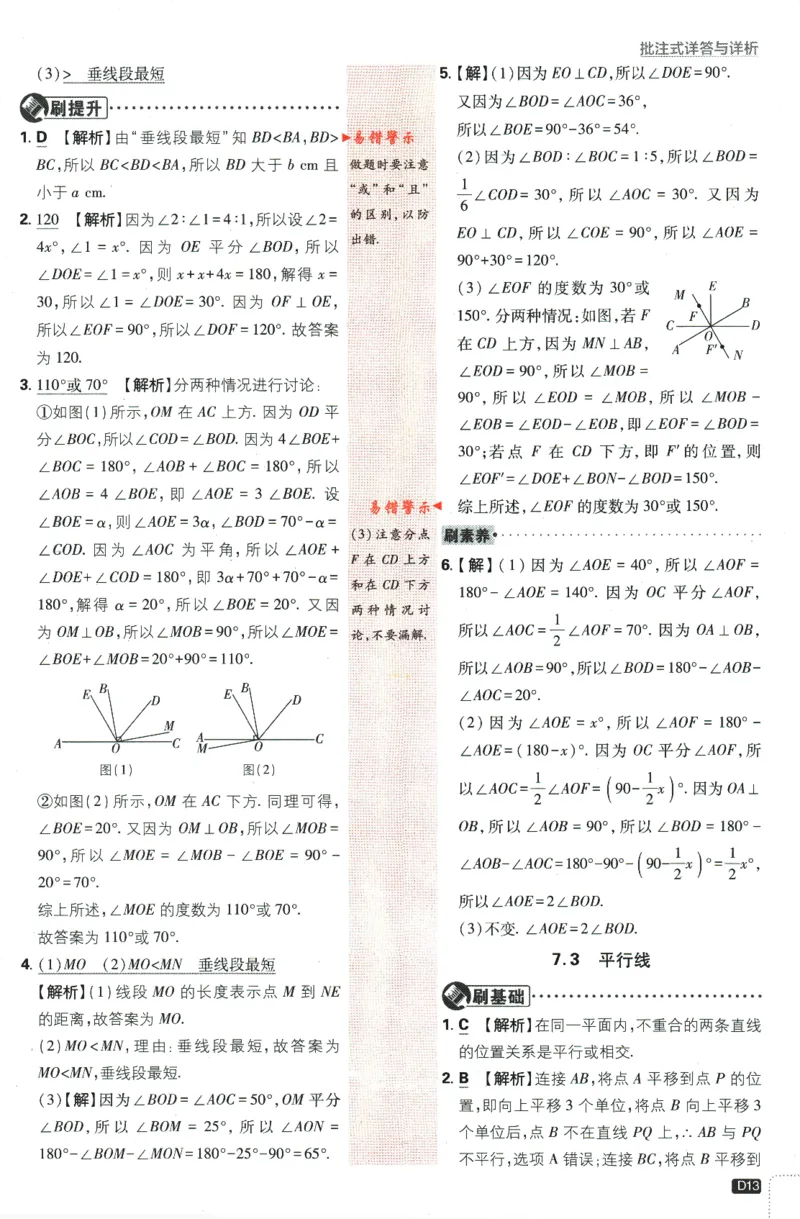 批注式详答与详析
(3)> 垂线段最短
刷提升
1. D 【解析】由“垂线段最短”知 BD<BA,BD>
BC,所以 BC<BD<BA,所以 BD 大于 b cm 且
小于 a cm.
2. 120 【解析】因为∠2∶∠1=4∶1,所以设∠2=
4x°,∠1 = x°. 因为 OE 平分∠BOD,所以
∠DOE=∠1=x°,则 x+x+4x=180,解得 x=
30,所以∠1=∠DOE=30°. 因为 OF⊥OE,
所以∠EOF=90°,所以∠DOF=120°. 故答案
为 120.
3. 110°或 70° 【解析】分两种情况进行讨论:
①如图(1)所示,OM 在 AC 上方. 因为 OD 平
分∠BOC,所以∠COD=∠BOD. 因为 4∠BOE+
∠BOC = 180°, ∠AOB + ∠BOC = 180°, 所以
∠AOB = 4 ∠BOE, 即 ∠AOE = 3 ∠BOE. 设
∠BOE=α,则∠AOE=3α,∠BOD=70°-α=
∠COD. 因为 ∠AOC 为平角,所以 ∠AOE +
∠DOE+∠COD=180°,即 3α+70°+70°-α=
180°,解得 α=20°,所以∠BOE=20°. 又因
为 OM⊥OB,所以∠MOB=90°,所以∠MOE=
∠BOE+∠MOB=20°+90°=110°.
E B D M A O C
图(1)
E B D A M O C
图(2)
②如图(2)所示,OM 在 AC 下方. 同理可得,
∠BOE=20°. 又因为 OM⊥OB,所以∠MOB=
90°,所以 ∠MOE = ∠MOB - ∠BOE = 90° -
20°=70°.
综上所述,∠MOE 的度数为 110°或 70°.
故答案为 110°或 70°.
4. (1)MO (2)MO<MN 垂线段最短
【解析】(1)线段 MO 的长度表示点 M 到 NE
的距离,故答案为 MO.
(2)MO<MN,理由:垂线段最短,故答案为
MO<MN,垂线段最短.
(3)【解】因为∠BOD=∠AOC=50°,OM 平分
∠BOD,所以 ∠BOM = 25°,所以 ∠AON =
180°-∠BOM-∠MON=180°-25°-90°=65°.
易错警示
做题时要注意
“或”和“且”
的区别,以防
出错.
易错警示
(3)注意分点
F 在 CD 上方
和在 CD 下方
两种情况讨
论,不要漏解.
5. 【解】(1)因为 EO⊥CD,所以∠DOE=90°.
又因为∠BOD=∠AOC=36°,
所以∠BOE=90°-36°=54°.
(2)因为∠BOD∶∠BOC=1∶5,所以∠BOD=
1/6∠COD=30°,所以 ∠AOC = 30°. 又因为
EO⊥CD,所以∠COE=90°,所以∠AOE=
90°+30°=120°.
(3) ∠EOF 的度数为 30°或
150°. 分两种情况:如图,若 F
在 CD 上方,因为 MN⊥AB,
∠EOD=90°,所以∠MOB=
M E B F C O D A F′ N
90°,所以 ∠EOD = ∠MOB,所以 ∠MOB -
∠EOB=∠EOD-∠EOB,即∠EOF=∠BOD=
30°;若点 F 在 CD 下方,即 F′的位置,则
∠EOF′=∠DOE+∠BON-∠BOD=150°.
综上所述,∠EOF 的度数为 30°或 150°.
刷素养
6. 【解】(1)因为∠AOE=40°,所以∠AOF=
180°-∠AOE=140°. 因为 OC 平分∠AOF,
所以∠AOC=1/2∠AOF=70°. 因为 OA⊥OB,
所以∠AOB=90°,所以∠BOD=180°-∠AOB-
∠AOC=20°.
(2)因为 ∠AOE = x°,所以 ∠AOF = 180° -
∠AOE=(180-x)°. 因为 OC 平分∠AOF,所
以∠AOC=1/2∠AOF=(90-1/2x)°. 因为 OA⊥
OB,所以∠AOB=90°,所以∠BOD=180°-
∠AOB-∠AOC=180°-90°-(90-1/2x)°=1/2x°,
所以∠AOE=2∠BOD.
(3)不变. ∠AOE=2∠BOD.
7.3 平行线
刷基础
1. C 【解析】在同一平面内,不重合的两条直线
的位置关系是平行或相交.
2. B 【解析】连接 AB,将点 A 平移到点 P 的位
置,即向上平移 3 个单位,将点 B 向上平移 3
个单位后,点 B 不在直线 PQ 上,∴ AB 与 PQ
不平行,选项 A 错误;连接 BC,将点 B 平移到
D13